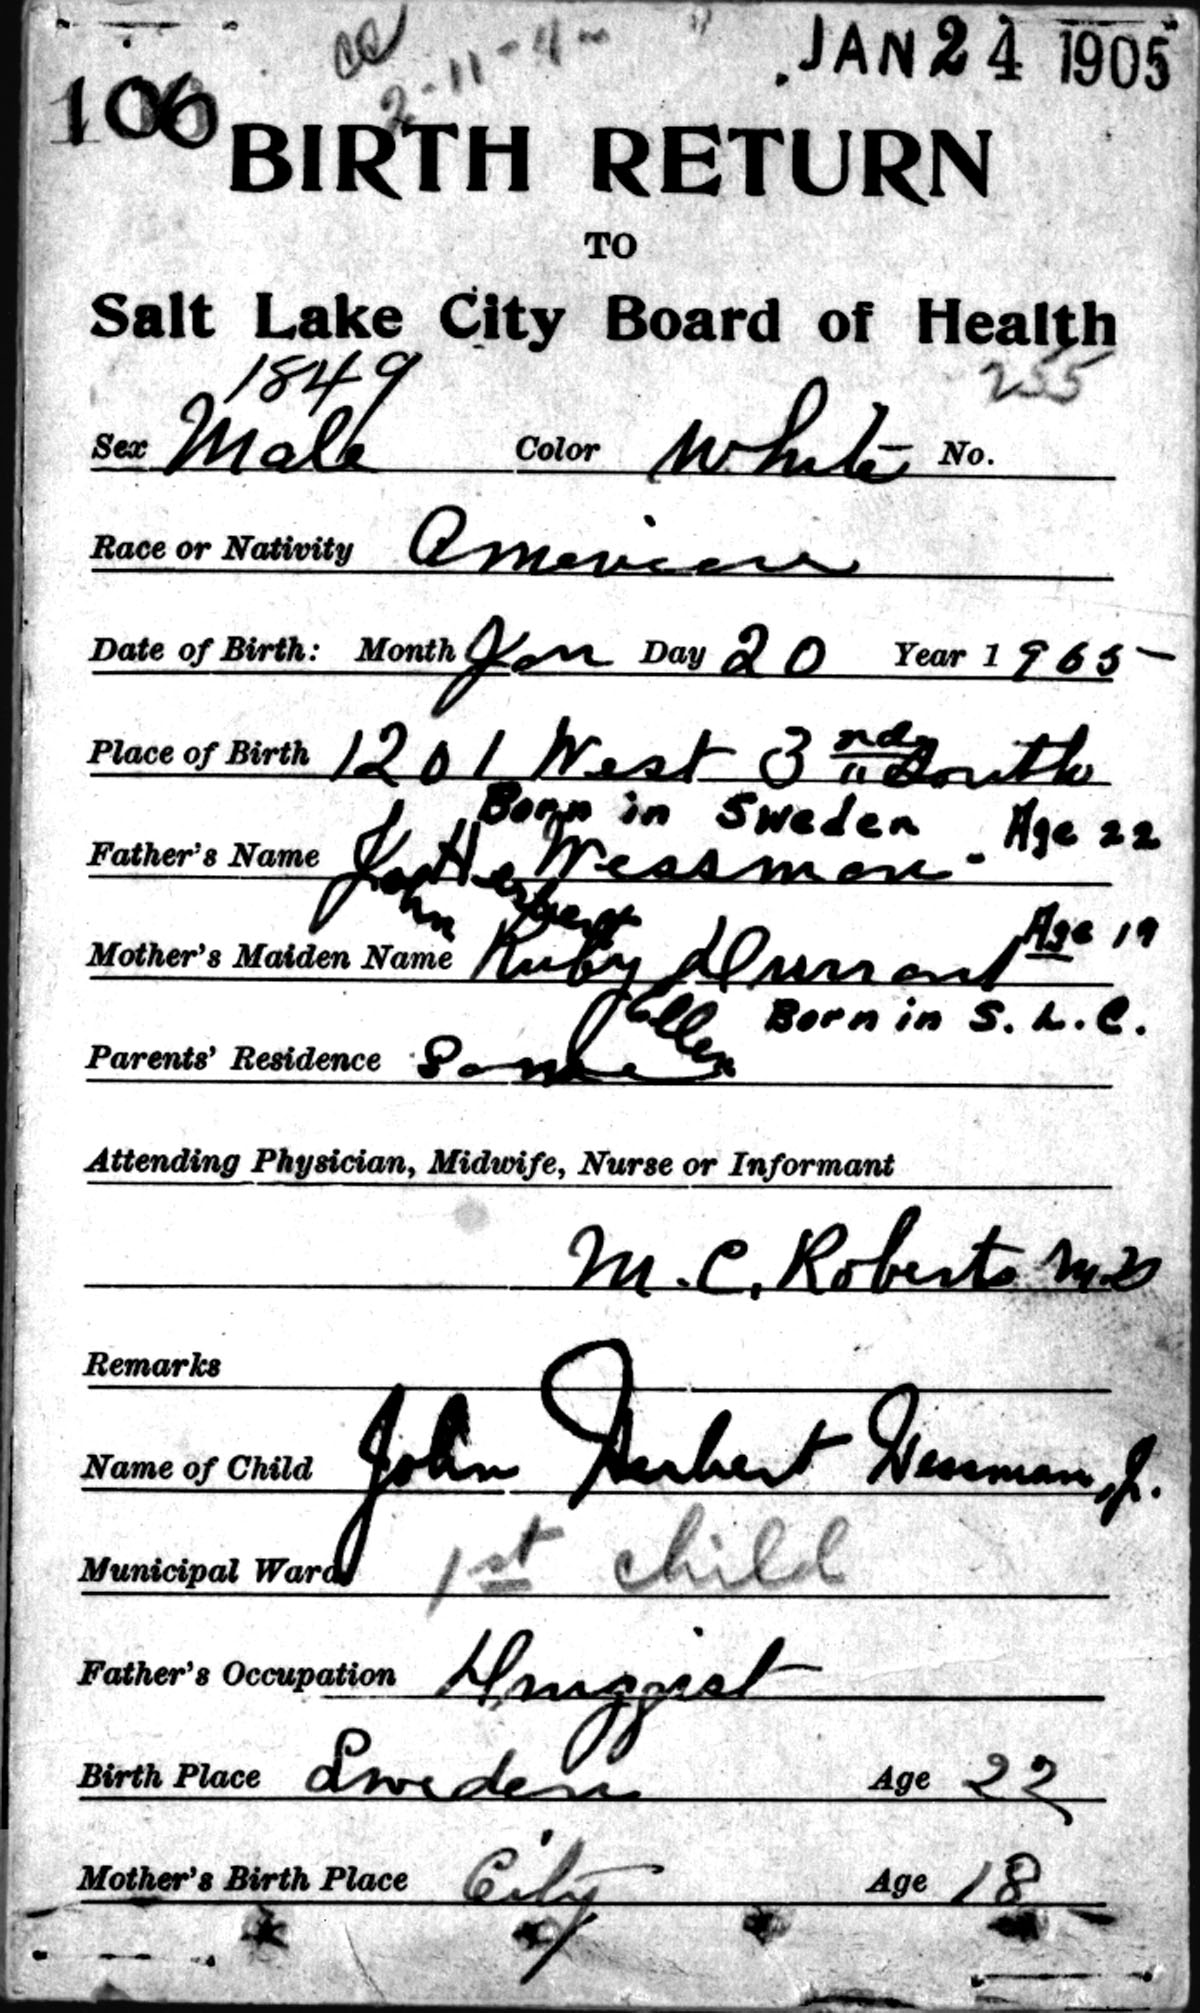 JAN 24 1905
106 2-11-4-
BIRTH RETURN
TO
Salt Lake City Board of Health
1849 255
Sex Male Color White No.
Race or Nativity American
Date of Birth: Month Jan Day 20 Year 1 905
Place of Birth 1201 West 3rd South
Born in Sweden Age 22
Father's Name Jno H Wessman
John Herbert
Age 19
Mother's Maiden Name Ruby Durrant
Ellen Born in S. L. C.
Parents' Residence Same
Attending Physician, Midwife, Nurse or Informant
M. C. Roberts M.D
Remarks
Name of Child John Herbert Wessman, Jr.
Municipal Ward 1st child
Father's Occupation Druggist
Birth Place Sweden Age 22
Mother's Birth Place City Age 18